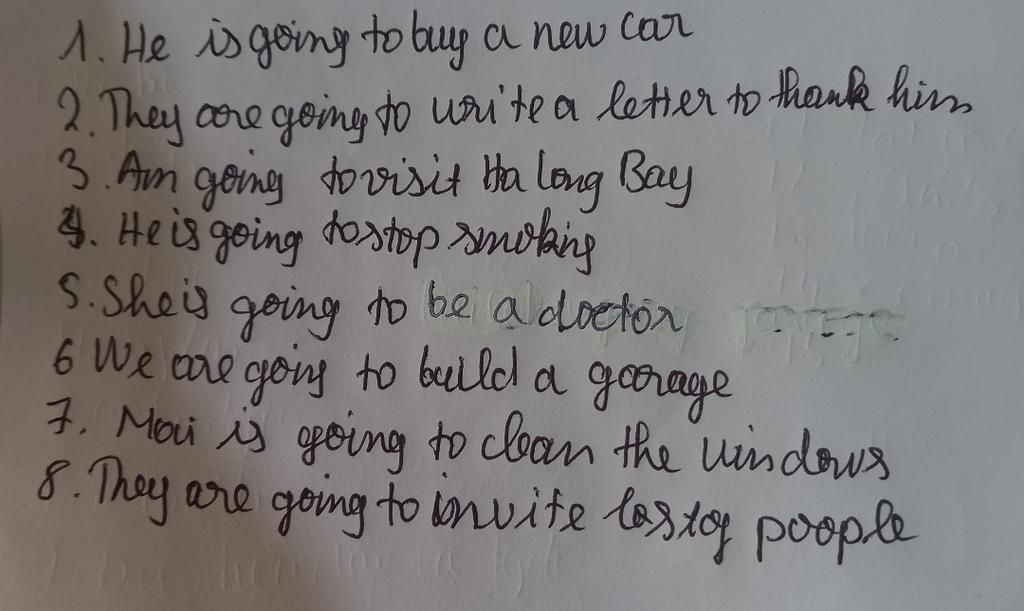 1. He is going to buy a new car
2. They are going to write a letter to thank him
3. Am going to visit Ha long Bay
4. He is going to stop smoking
5. She is going to be a doctor
6 We are going to build a garage
7. Mai is going to clean the windows
8. They are going to invite